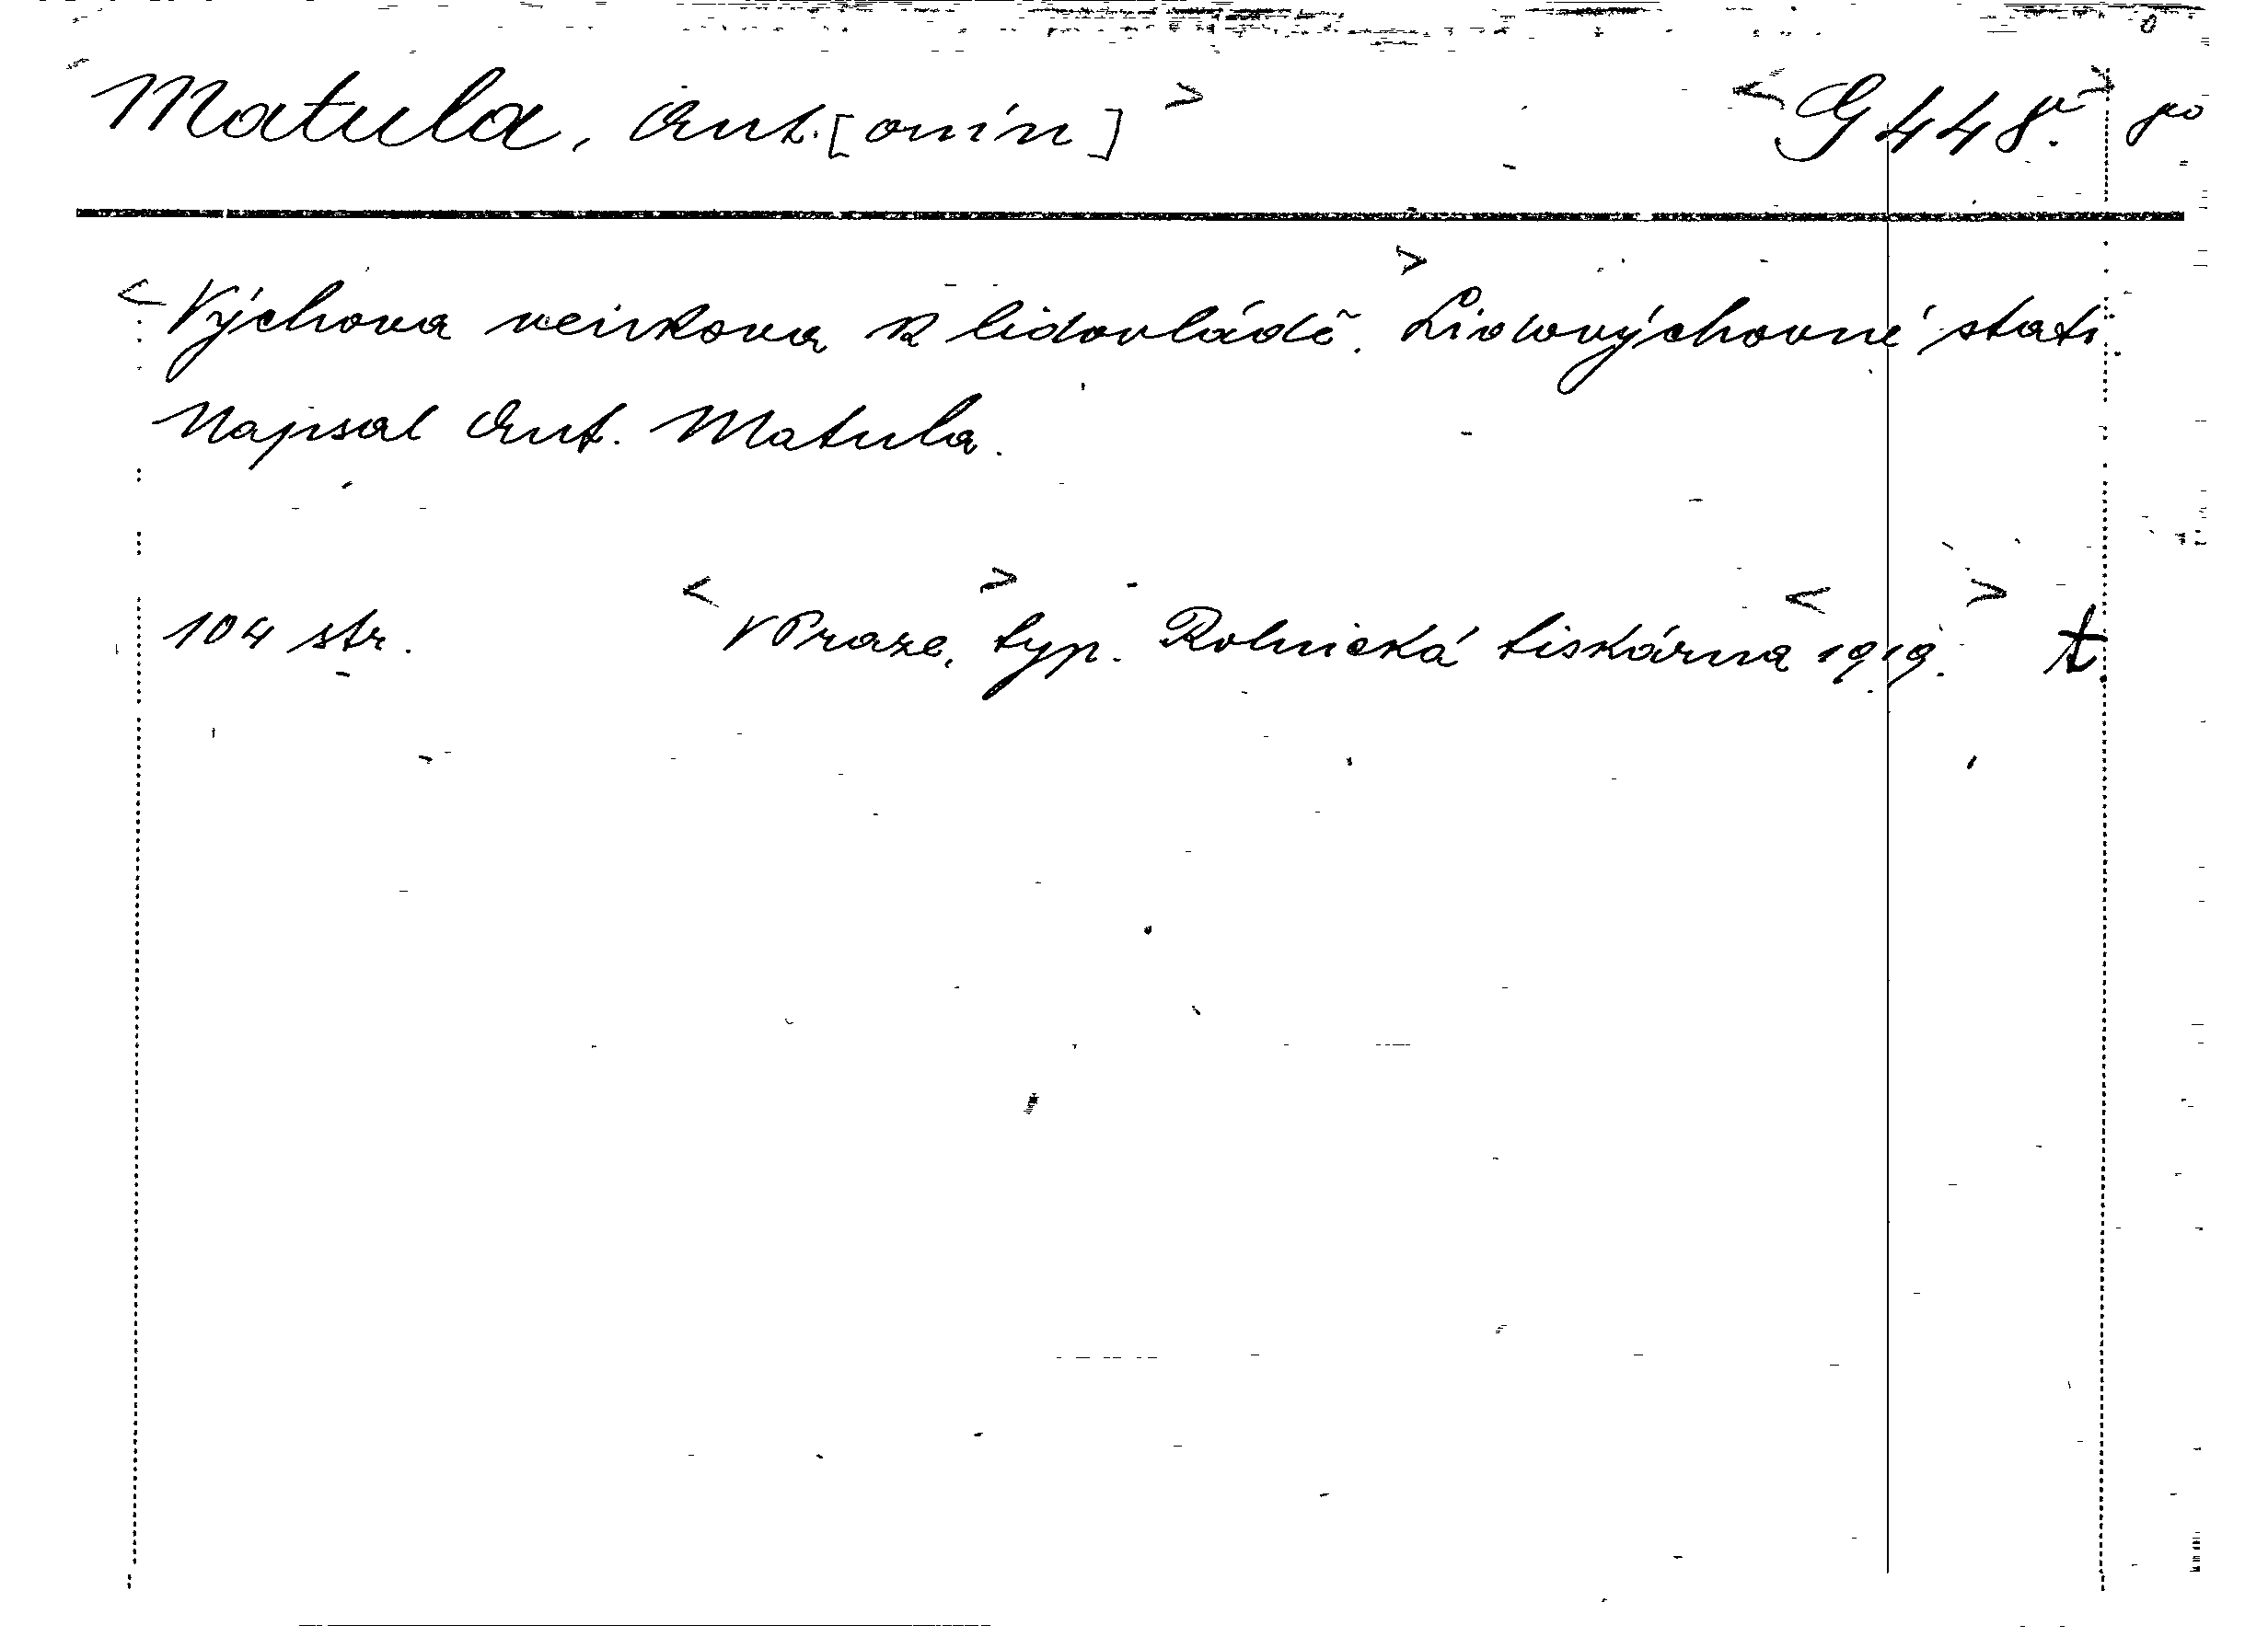 Matula, Ant.[onín] > < G 448. >
< Výchova venkova k lidovládě. > Lidovýchovné stati.
Napsal Ant. Matula.
104 str. < V Praze, > typ. Rolnická tiskárna < 1919. > t.